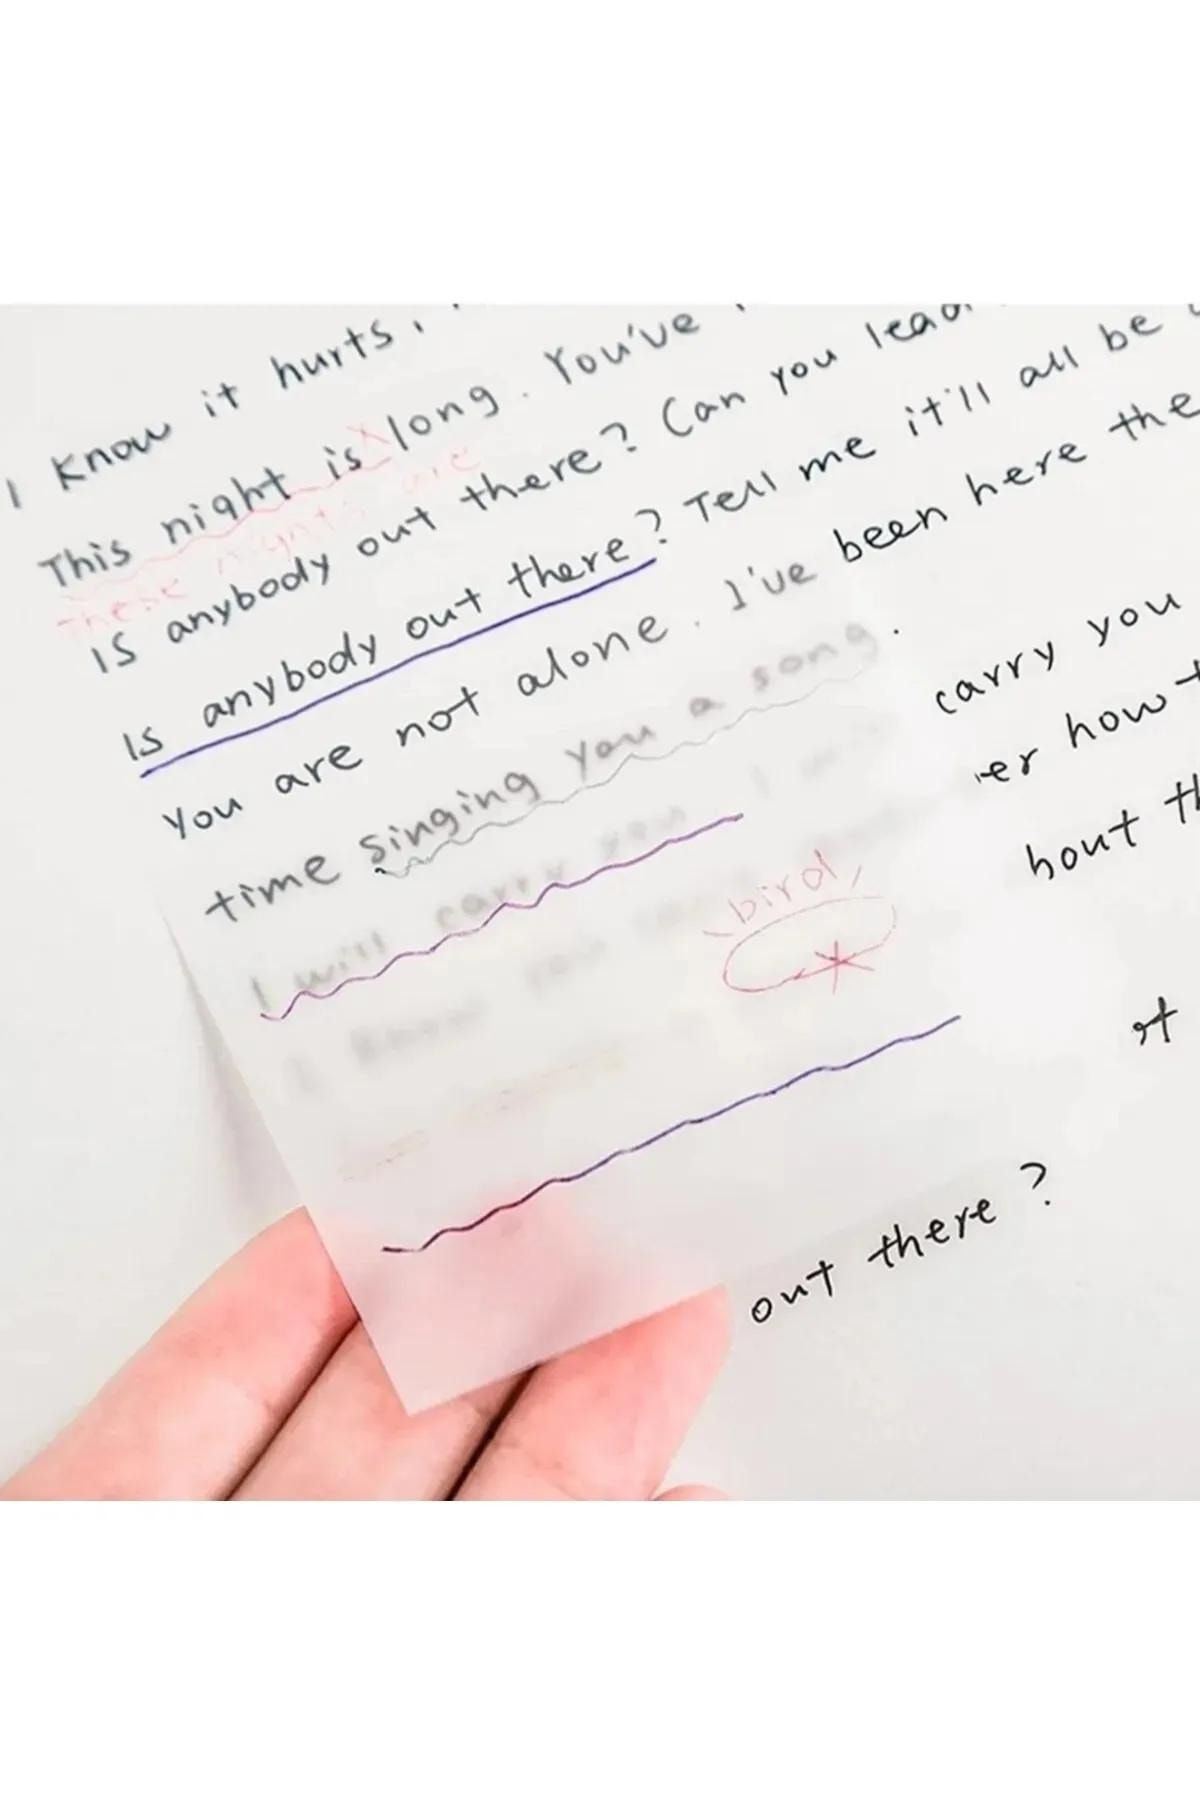 I know it hurts,
This night is long. You've
these nights are
Is anybody out there? Can you lead
Is anybody out there? Tell me it'll all be
You are not alone. I've been here the
time singing you a song.
I will carry you I will carry you
I know you
bird
out there?